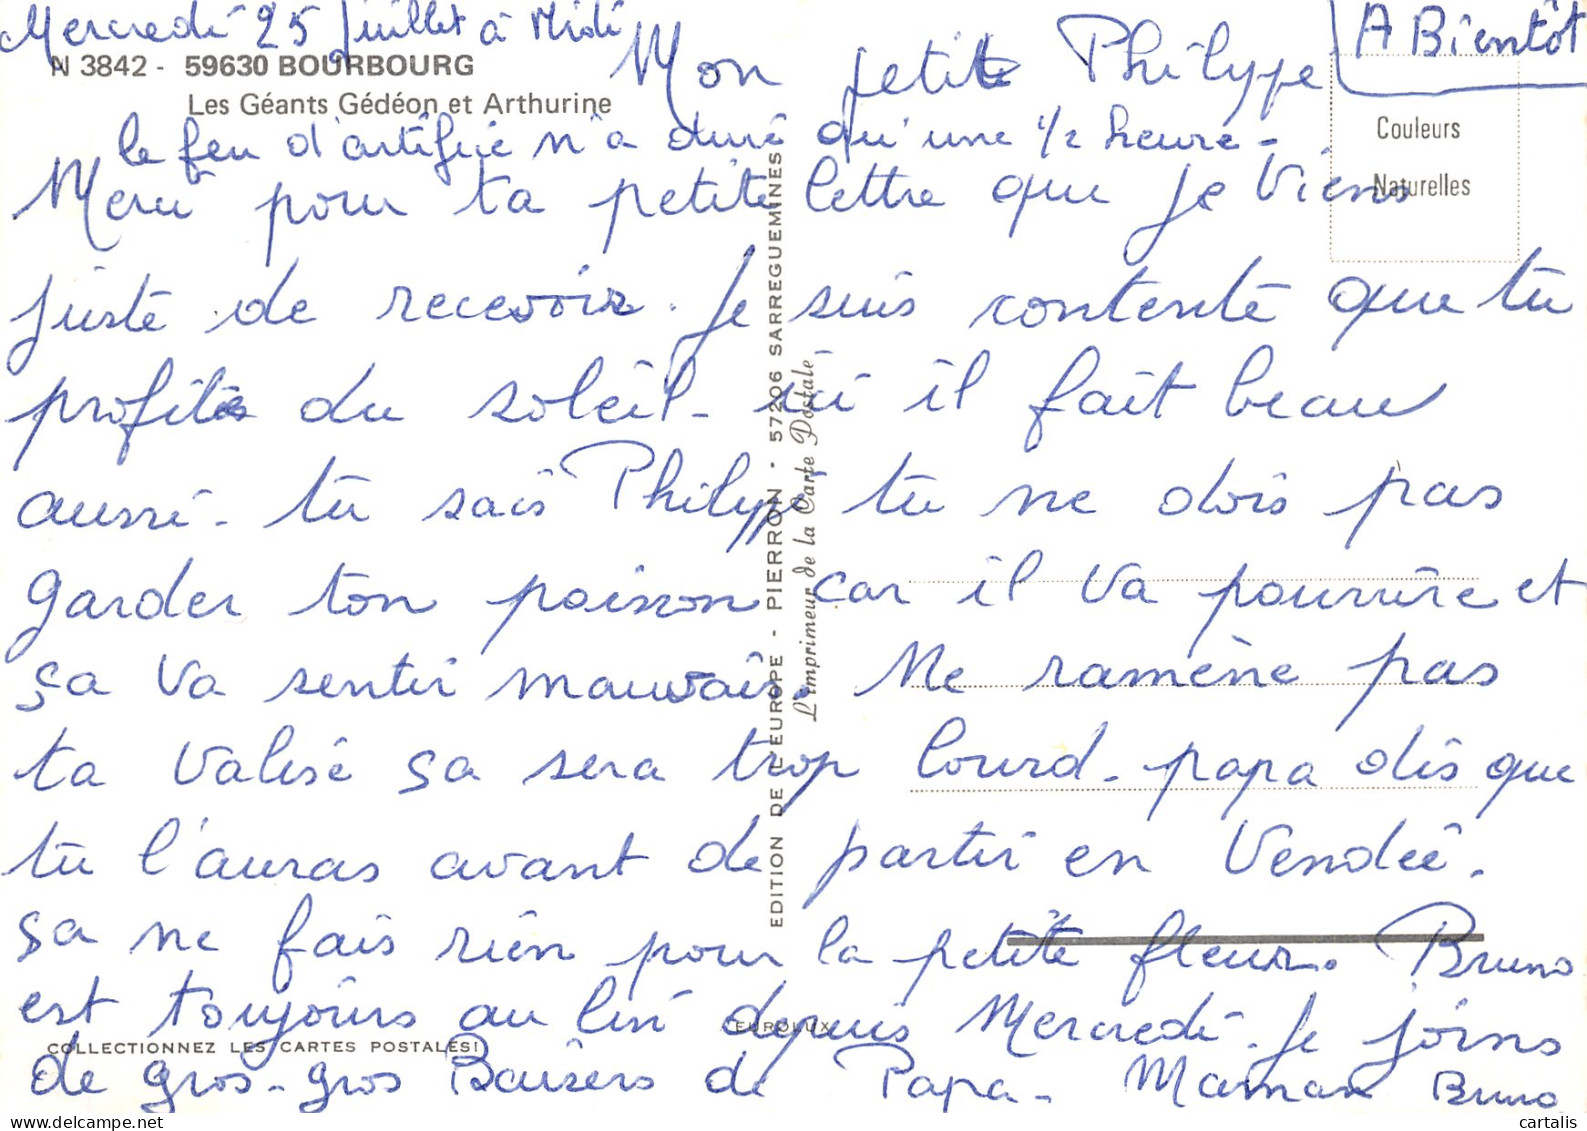 Mercredi 25 Juillet à Midi
A Bientôt
N 3842 - 59630 BOURBOURG
Les Géants Gédéon et Arthurine
Mon petit Philippe
Couleurs
Naturelles
le feu d'artifice n'a duré qu'une 1/2 heure -
Merci pour ta petite lettre que je viens
juste de recevoir. Je suis contente que tu
profites du soleil - ici il fait beau
aussi - tu sais Philippe tu ne dois pas
garder ton poisson car il va pourrire et
sa va sentir mauvais. Me ramène pas
ta valise sa sera trop lourd - papa dis que
tu l'auras avant de partir en Vendée.
sa ne fais rien pour la petite fleur. Bruno
est toujours au lit depuis Mercredi. Je joins
de gros-gros Baisers de Papa - Maman Bruno
EDITION DE L'EUROPE - PIERRON - 57206 SARREGUEMINES
L'imprimeur de la Carte Postale
EUROLUX
COLLECTIONNEZ LES CARTES POSTALES!
cartalis